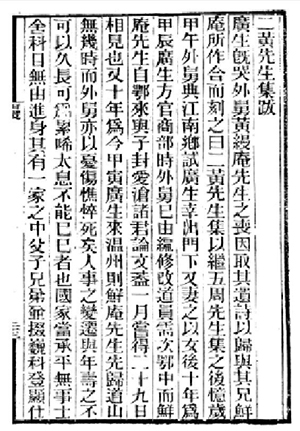 二黃先生集跋
廣生旣哭外舅黃縵庵先生之喪因取其遺詩以歸與其兄鮮
庵所作合而刻之曰二黃先生集以繼五周先生集之後憶歲
甲午外舅典江南鄉試廣生幸出門下又妻之以女後十年爲
甲辰廣生方官商部時外舅已由編修改道員需次鄂中而鮮
庵先生自鄂來與子封愛滄諸君論文蓋一月嘗得二十九日
相見也又十年爲今甲寅廣生來温州則鮮庵先生先歸道山
無幾時而外舅亦以憂傷憔悴死矣人事之變遷與年壽之不
可以久長可爲累唏太息不能已已者也國家當承平無事士
舍科目無由進身其有一家之中父子兄弟並掇巍科登顯仕